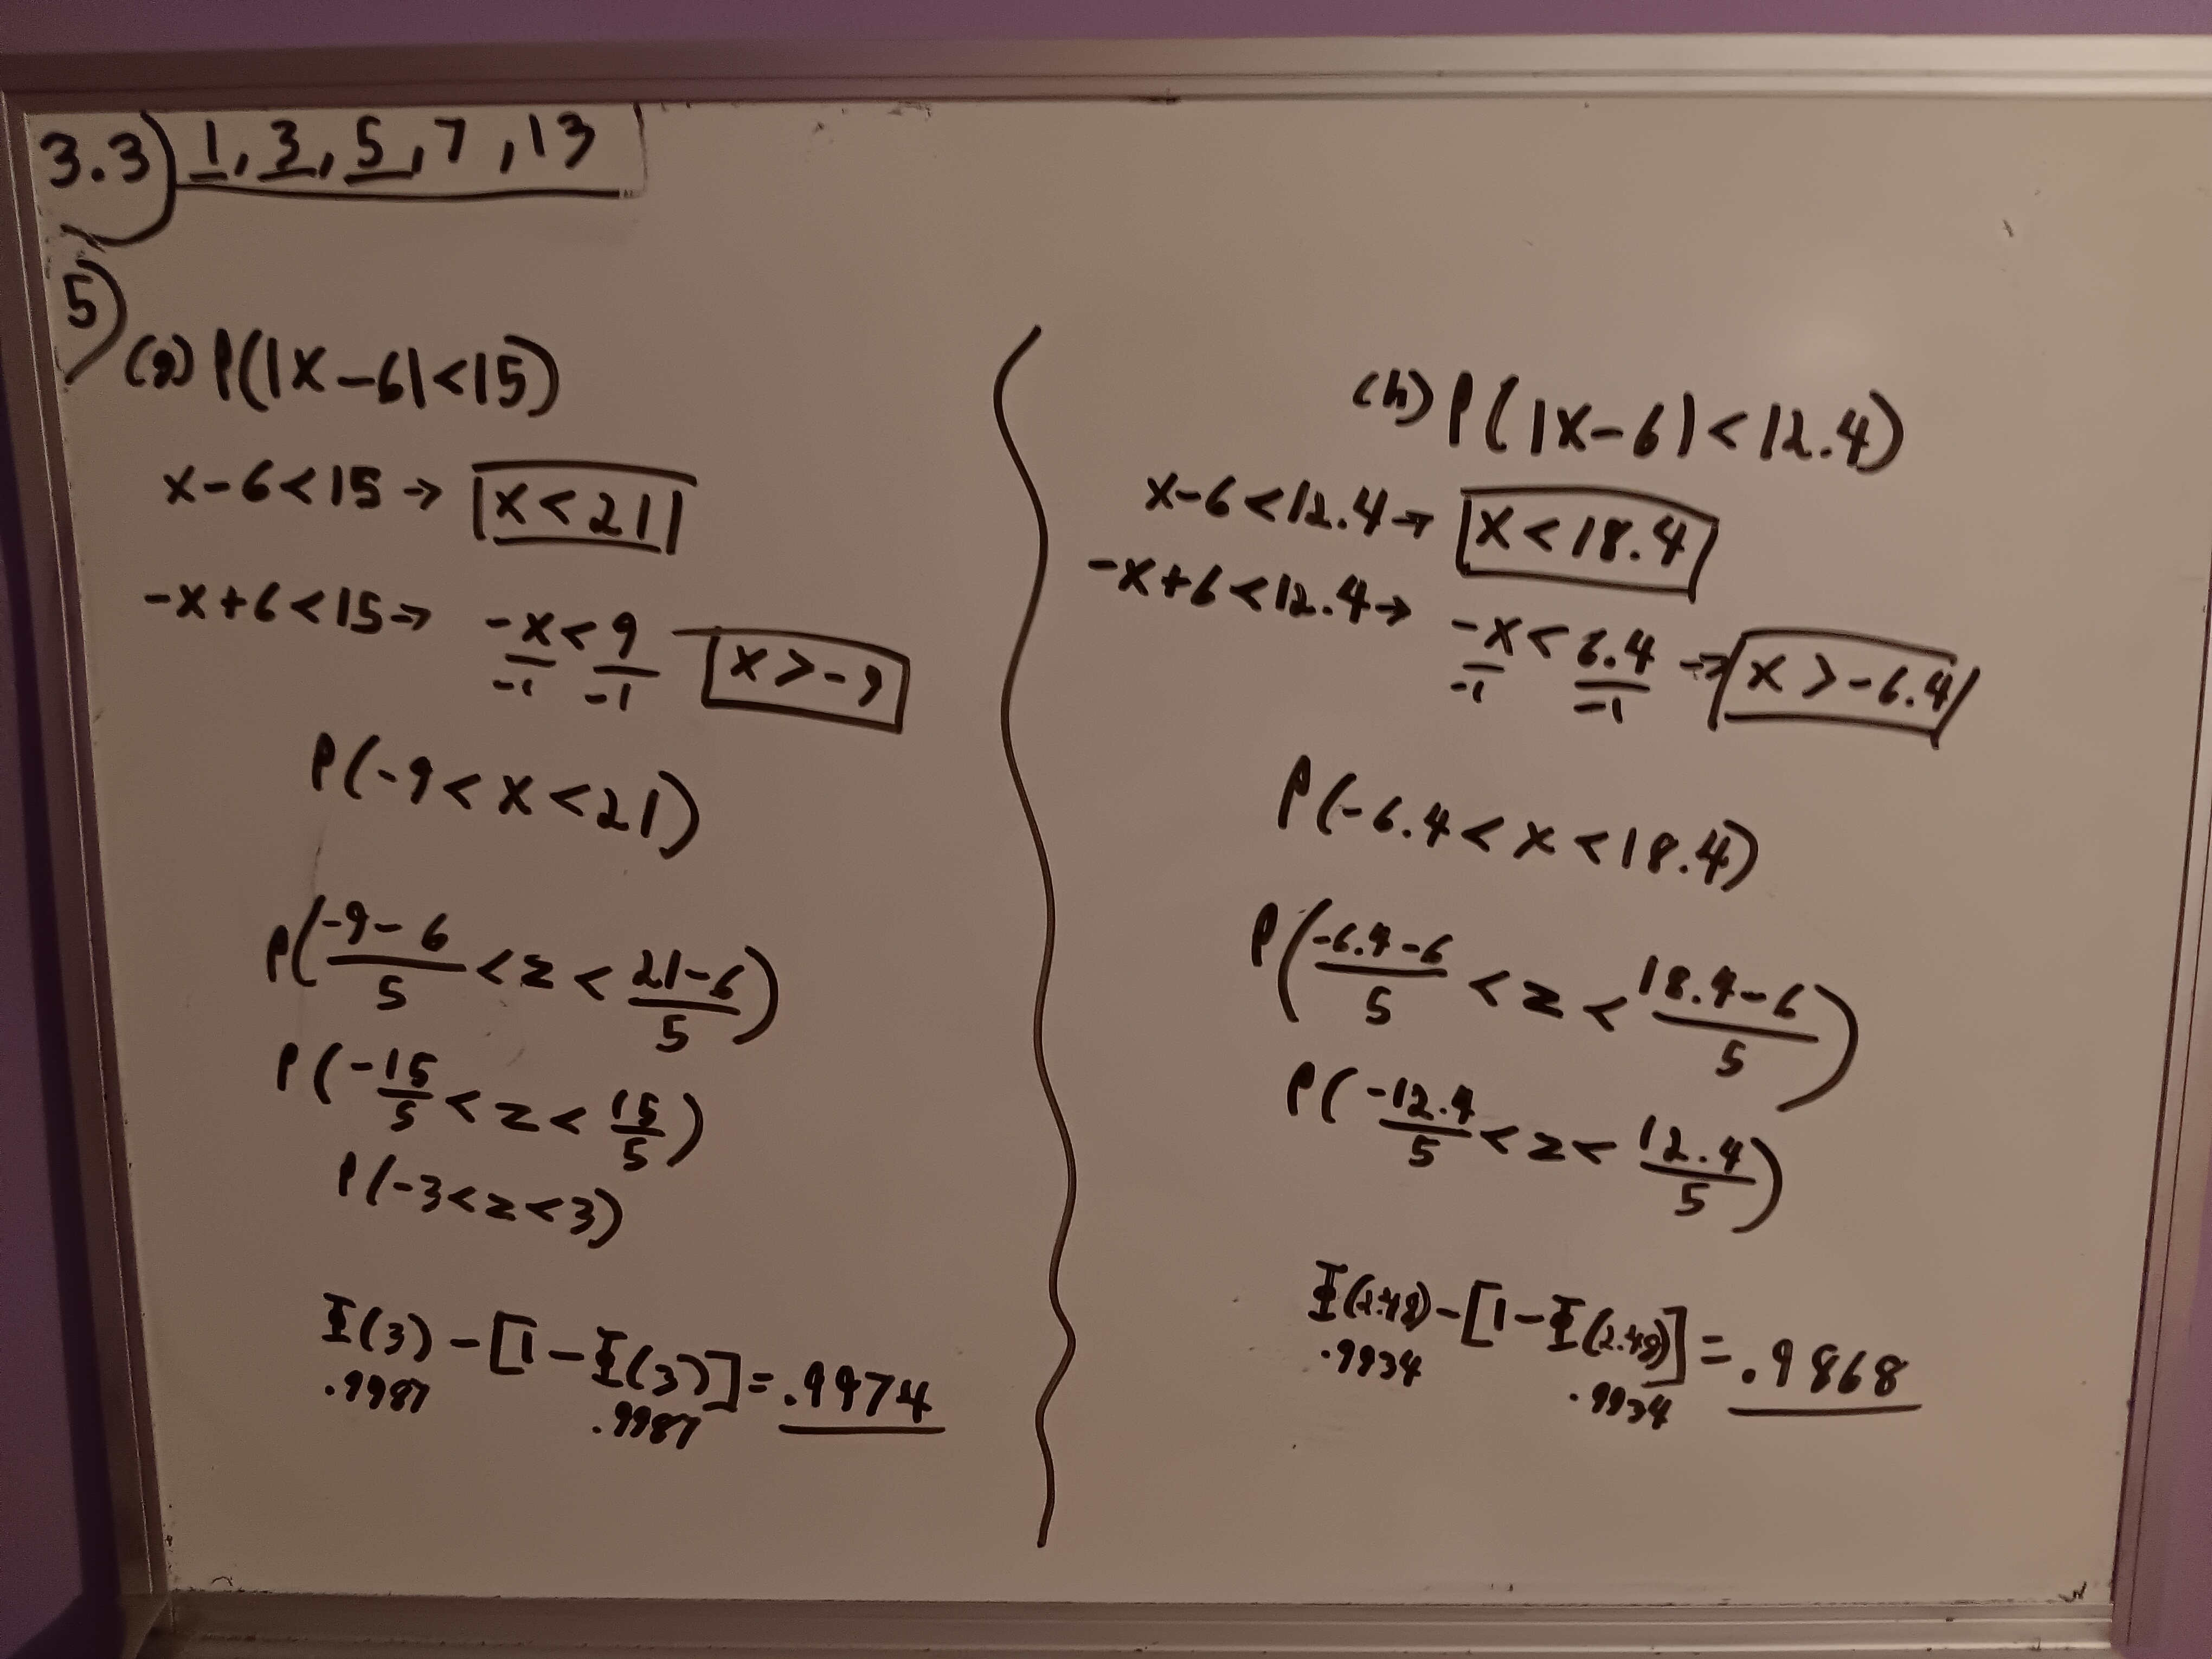 3.3) 1, 3, 5, 7, 13
5)
(g) P(|x-6|<15)
x-6<15 → x<21
-x+6<15→ -x/-1 < 9/-1 x>-9
P(-9<x<21)
P((-9-6)/5 <z< (21-6)/5)
P(-15/5 <z< 15/5)
P(-3<z<3)
Φ(3) - [1-Φ(3)] = .9974
.9987 .9987
(h) P(|x-6|<12.4)
x-6<12.4→ x<18.4
-x+6<12.4→ -x/-1 < 6.4/-1 → x>-6.4
P(-6.4<x<18.4)
P((-6.4-6)/5 <z< (18.4-6)/5)
P(-12.4/5 <z< 12.4/5)
Φ(2.48)-[1-Φ(2.48)] = .9868
.9934 .9934